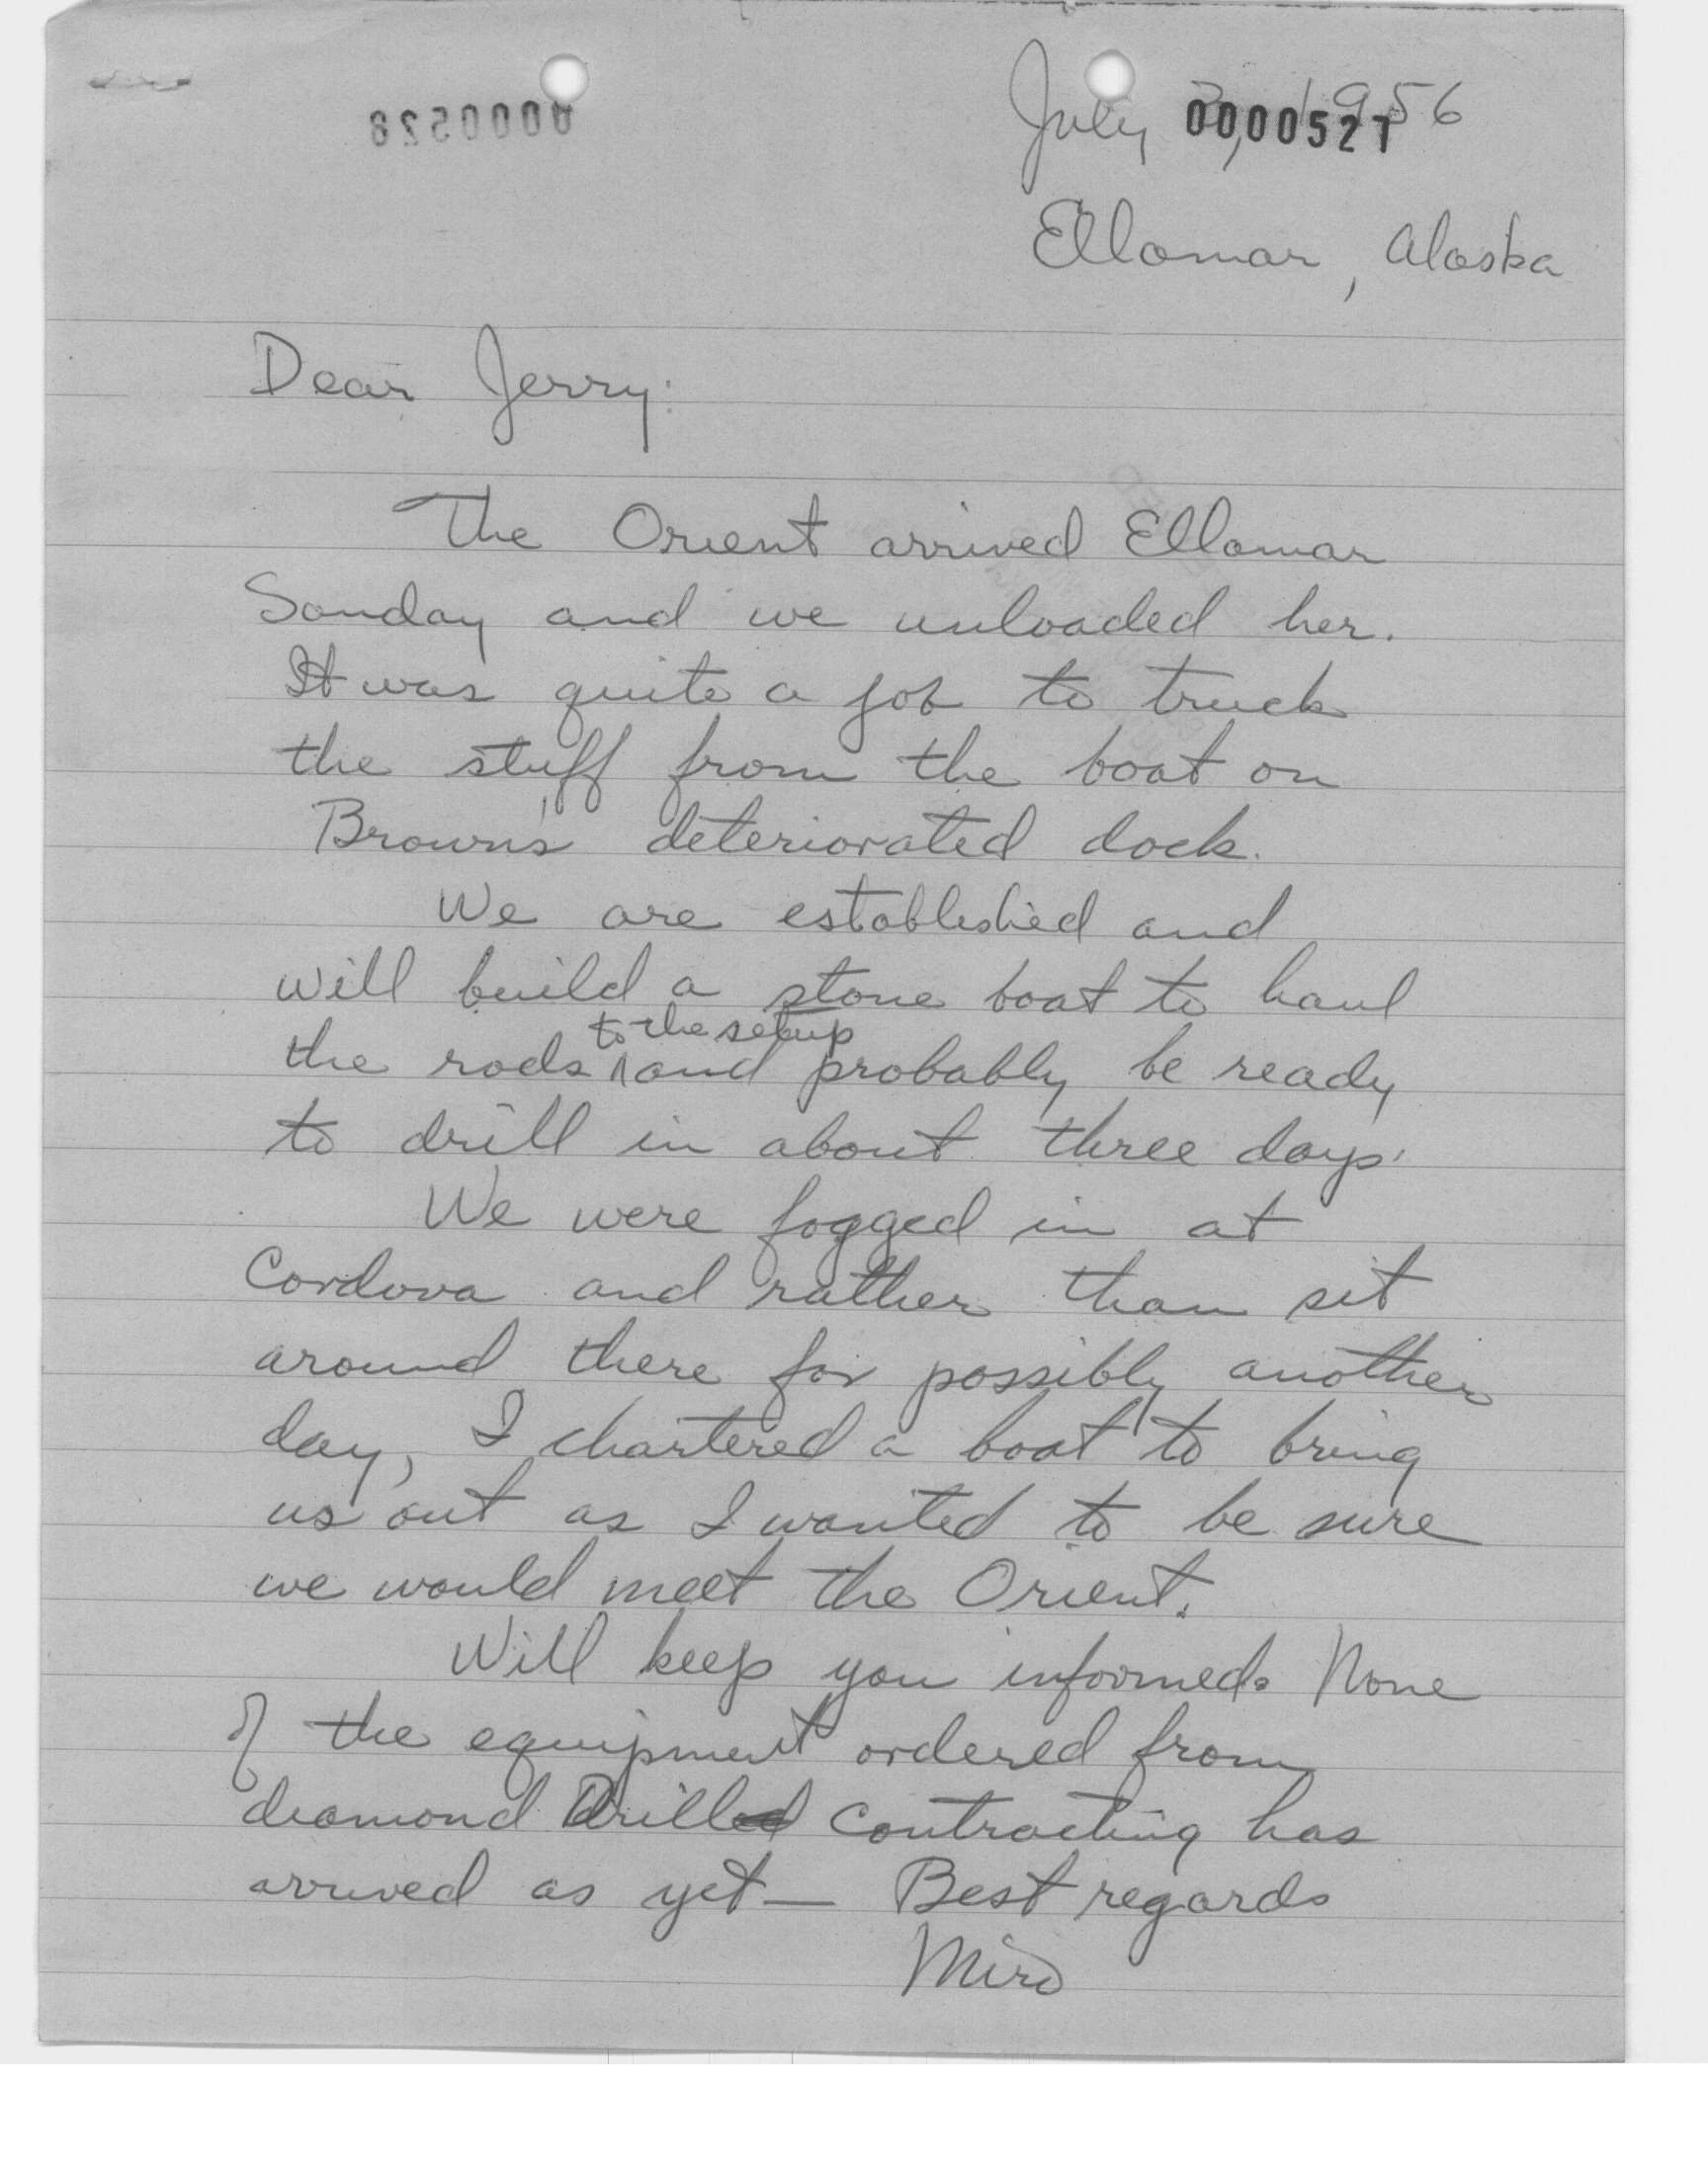 July , 1956
0000527
0000528
Ellamar, Alaska
Dear Jerry:
The Orient arrived Ellamar
Sunday and we unloaded her.
It was quite a job to truck
the stuff from the boat on
Brown's deteriorated dock.
We are established and
will build a stone boat to haul
to the setup
the rods and probably be ready
to drill in about three days.
We were fogged in at
Cordova and rather than sit
around there for possibly another
day, I chartered a boat to bring
us out as I wanted to be sure
we would meet the Orient.
Will keep you informed. None
of the equipment ordered from
diamond Drill contracting has
arrived as yet— Best regards
Miro